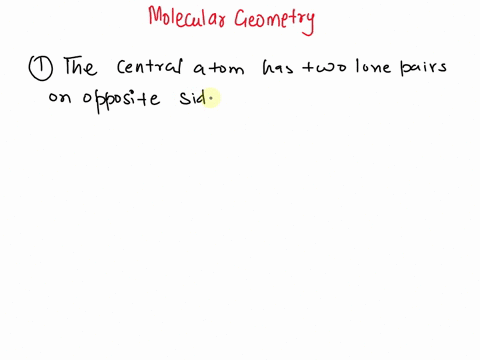 Molecular Geometry
① The central atom has two lone pairs
on opposite sid